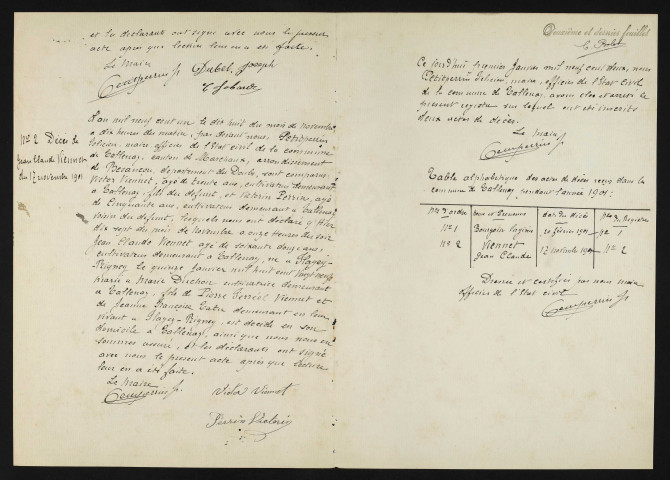 et les déclarants ont signé avec nous le présent
acte après que lecture leur en a été faite.
Le Maire
Dubel Joseph
N° 2 Décès de
Jean Claude Viennet
du 17 novembre 1901
L'an mil neuf cent un le dix huit du mois de novembre
à dix heures du matin, par devant nous, Petitperrin
Félicien, maire, officier de l'état civil de la commune
de Tallenay, canton de Marchaux, arrondissement
de Besançon département du Doubs, sont comparus:
Victor Viennet, âgé de trente ans, cultivateur demeurant
à Tallenay, fils du défunt, et Victorin Perrin, âgé
de cinquante ans, cultivateur demeurant à Tallenay
voisin du défunt, lesquels nous ont déclaré qu'hier
dix sept du mois de novembre à onze heures du soir
Jean Claude Viennet âgé de soixante douze ans,
cultivateur demeurant à Tallenay, né à Flagey-
Rigney, le quinze janvier mil huit cent vingt neuf,
marié à Marie Duchon cultivatrice demeurant
à Tallenay, fils de Pierre Viennet et
de Jeanne Françoise demeurant en leur
vivant à Flagey-Rigney, est décédé en son
domicile à Tallenay, ainsi que nous nous en
sommes assuré, et les déclarants ont signé
avec nous le présent acte après que lecture
leur en a été faite.
Le Maire
Victor Viennet
Perrin Victorin
Deuxième et dernier feuillet
Ce jourd'hui premier janvier mil neuf cent deux, nous
Petitperrin Félicien, maire, officier de l'état civil
de la commune de Tallenay, avons clos et arrêté le
présent registre sur lequel ont été inscrits
deux actes de décès.
Le Maire
Table alphabétique des actes de décès reçus dans la
commune de Tallenay, pendant l'année 1901:
Nos d'ordre Noms et Prénoms date du décès Nos du Registre
N° 1 Bourgoin Virginie 20 février 1901 N° 1
N° 2 Viennet Jean Claude 17 novembre 1901 N° 2
Dressé et certifié par nous maire
officier de l'état civil